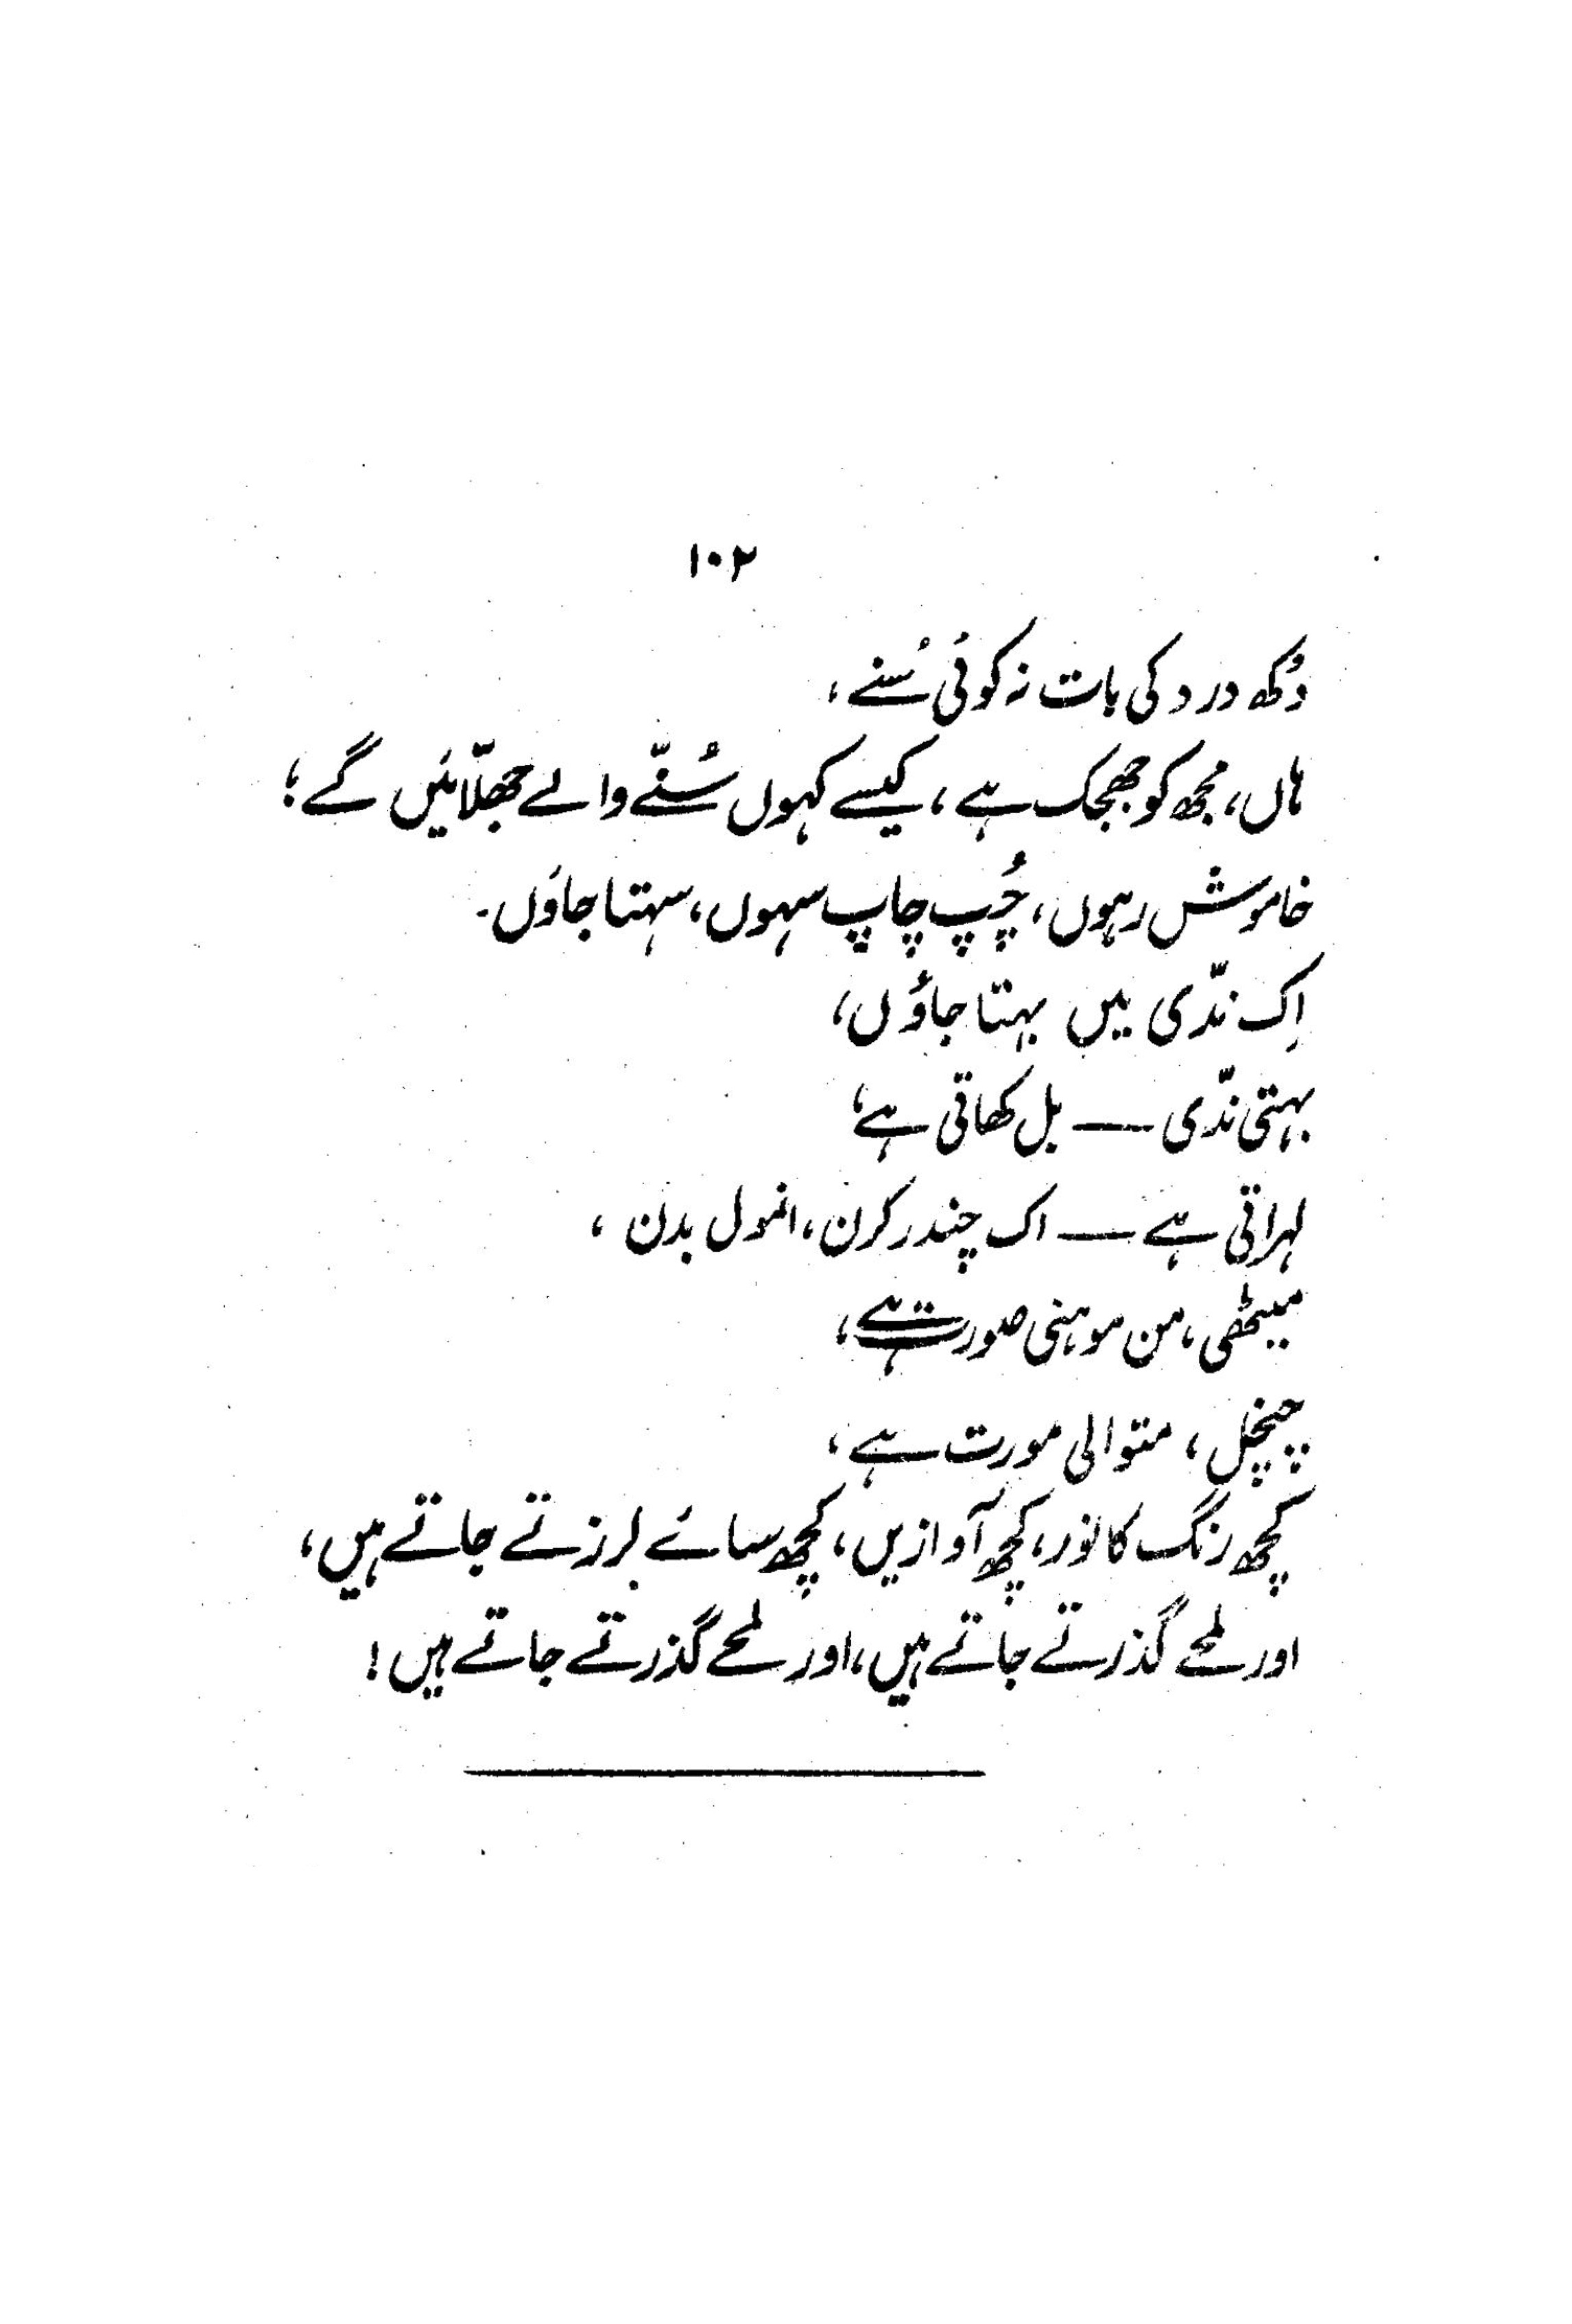 ۱۰۲
دُکھ درد کی بات نہ کوئی سُنے،
ہاں، مجھ کو جھجک ہے، کیسے کہوں سُننے والے جھلّائیں گے؛
خاموش رہوں، چُپ چاپ سہوں، سہتا جاؤں.
اِک ندّی میں بہتا جاؤں،
بہتی ندّی — بل کھاتی ہے،
لہراتی ہے — اک چندر کرن، انمول بدن،
میٹھی، من موہنی صورت ہے،
چنچل، متوالی مورت ہے،
کچھ رنگ کا نور، کچھ آوازیں، کچھ سائے لرزتے جاتے ہیں،
اور لمحے گذرتے جاتے ہیں، اور لمحے گذرتے جاتے ہیں!